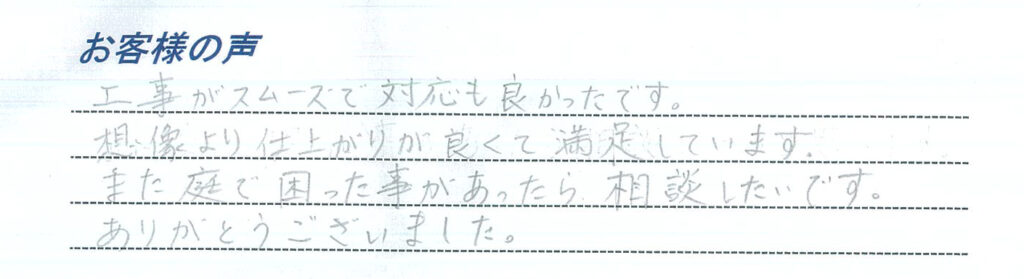 お客様の声
工事がスムーズで対応も良かったです。
想像より仕上がりが良くて満足しています.
また庭で困った事があったら、相談したいです。
ありがとうございました。